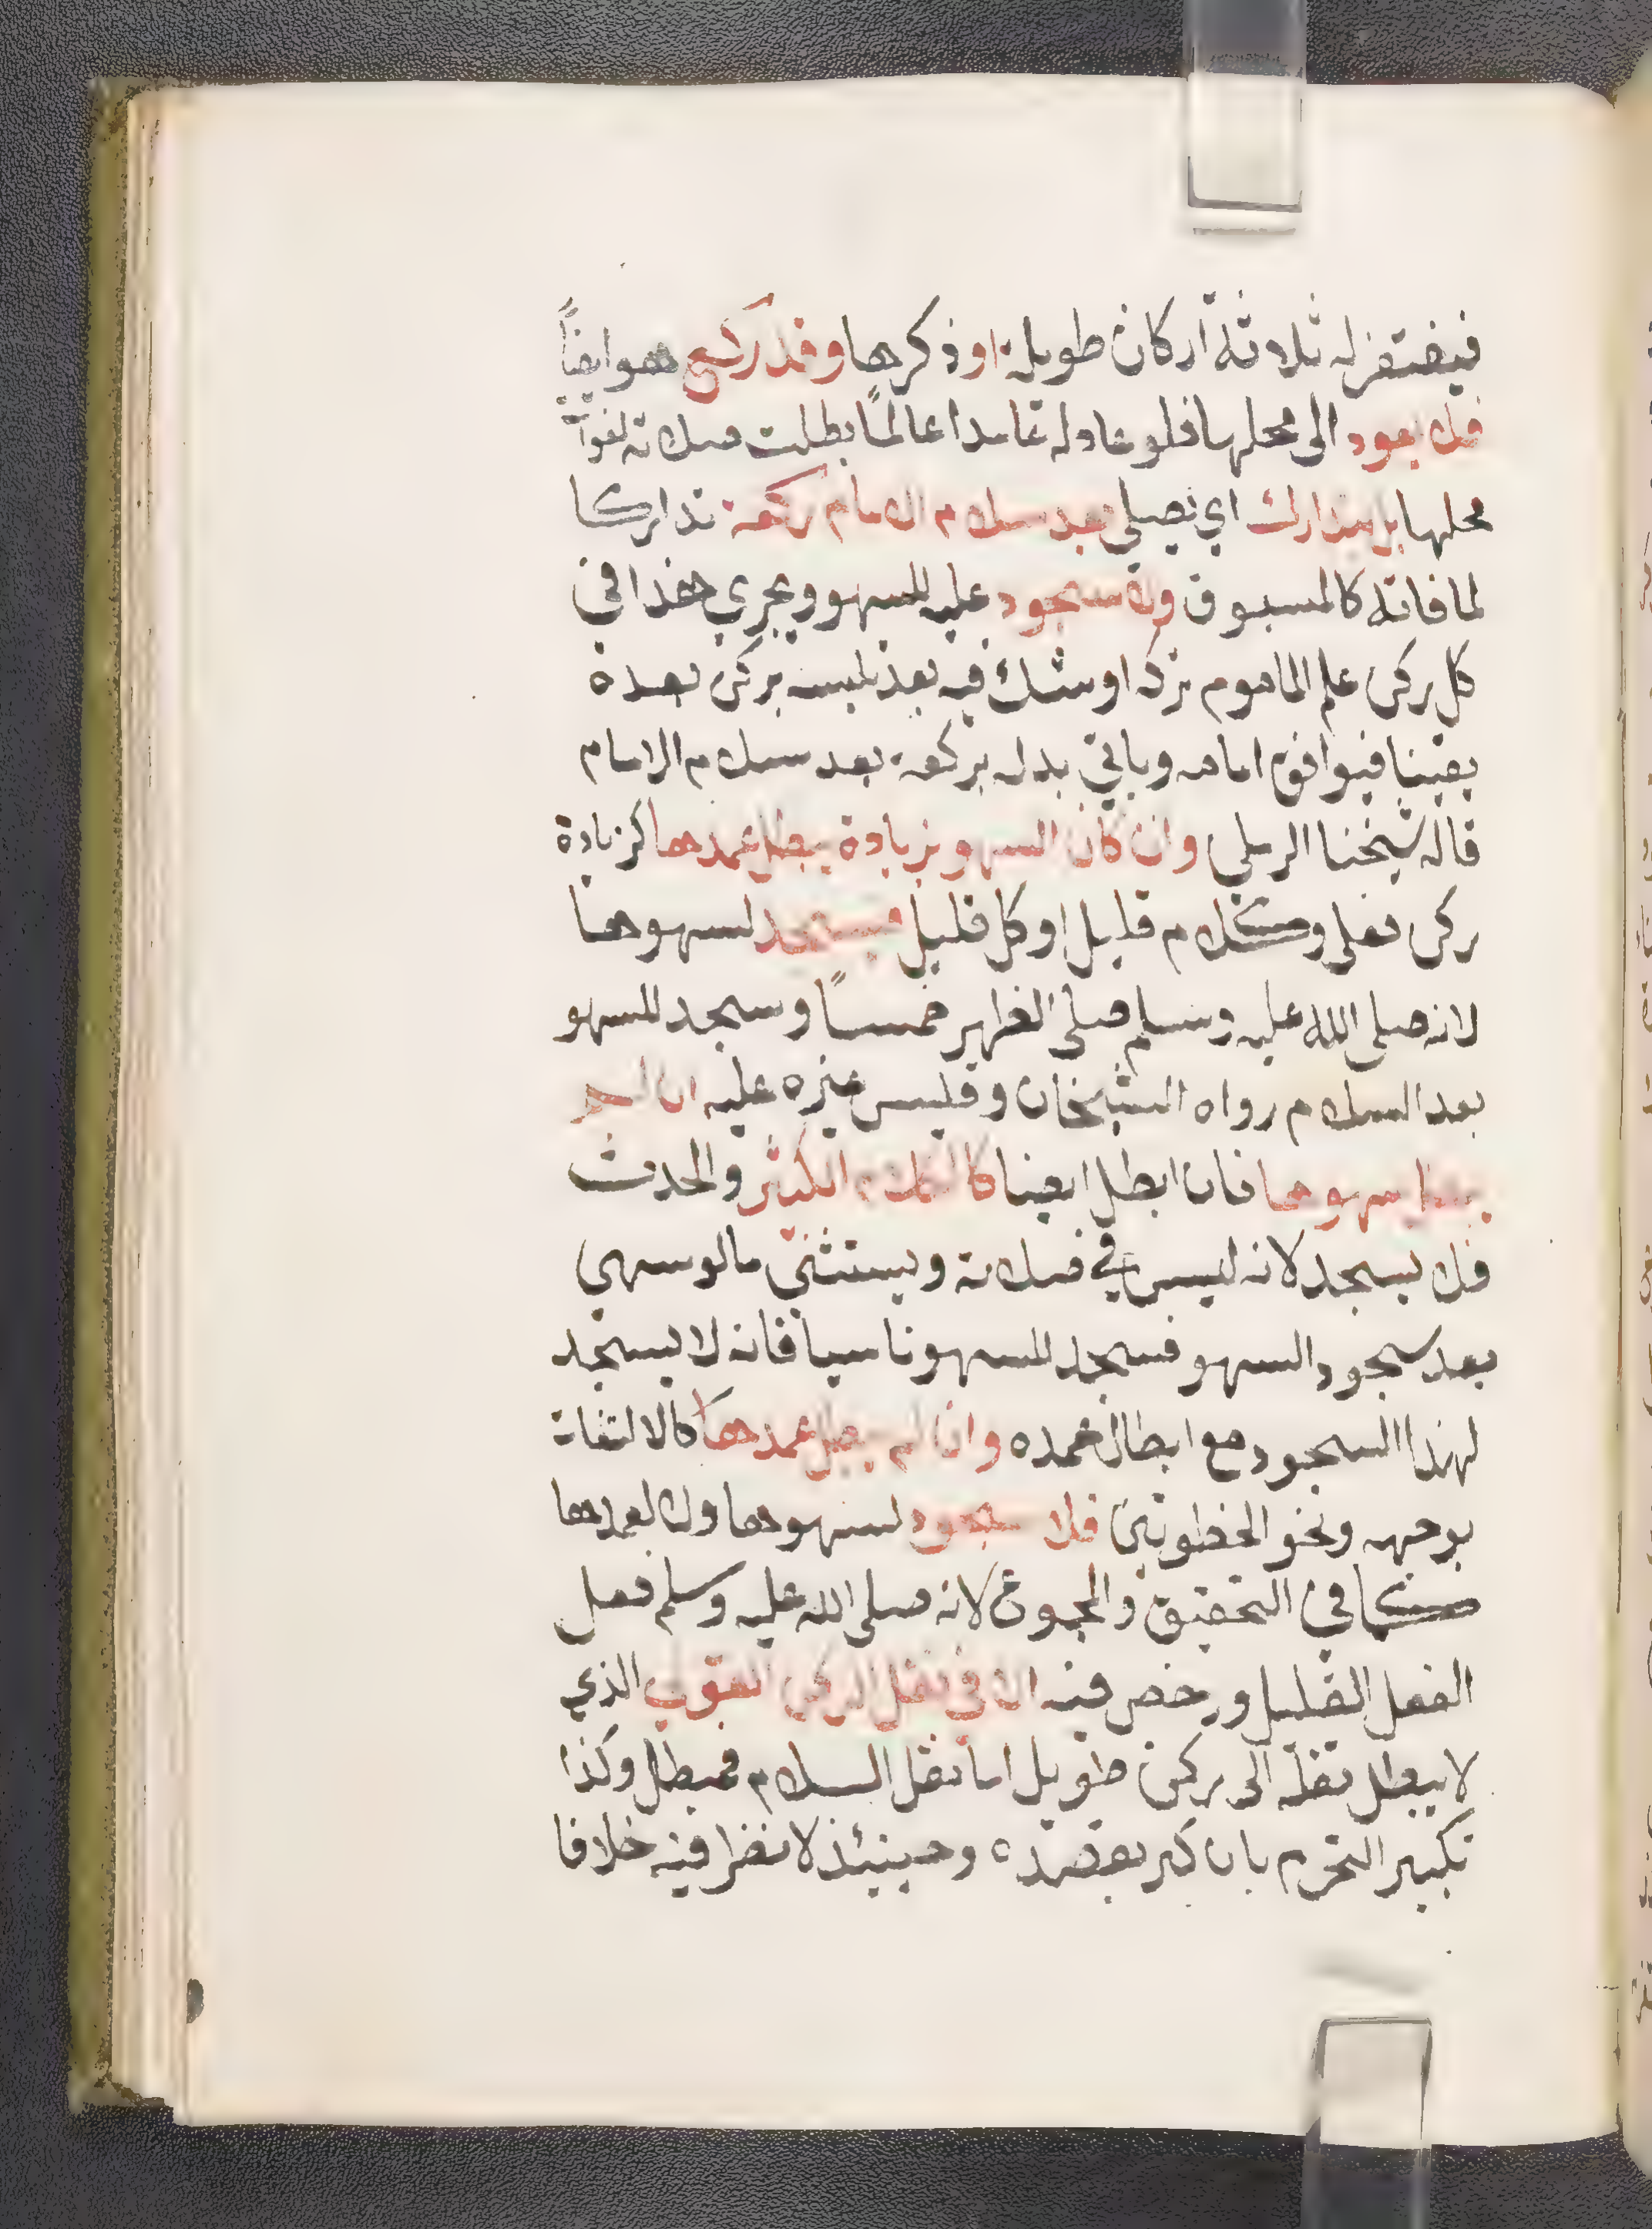 فيغتفر له ثلاثة اركان طويلة او ذكرها وقد ركع هو ايضاً
فلا يعود الى محلها فلو عاد له عامدا عالماً بطلت صلاته لفوات
محلها بل يتدارك اي يصلي بعد سلام الامام ركعة تداركا
لما فاته كالمسبوق ولا سجود عليه للسهو ويجري هذا في
كل ركن علم الماموم تركه او شك فيه بعد تلبسه بركن بعده
يقينا فيوافق امامه وياتي بدله بركعة بعد سلام الامام
قاله شيخنا الرملي وان كان السهو بزيادة يبطل عمدها كزيادة
ركن فعلي وككلام قليل او كل قليل فيسجد لسهوها
لانه صلى الله عليه وسلم صلى الظهر خمساً وسجد للسهو
بعد السلام رواه الشيخان وقليس غيره عليه ان لم
يبطل سهوها فان ابطل ايضا كالكلام الكثير والحدث
فلا يسجد لانه ليس في صلاته ويستثنى ما لو سهى
بعد سجود السهو فسجد للسهو ناسيا فانه لا يسجد
لهذا السجود مع ابطال عمده وان لم يبطل عمدها كالالتفات
بوجهه ونحو الخطوتين فلا سجود لسهوها ولا لعمدها
كما في التحقيق والمجموع لانه صلى الله عليه وسلم فعل
الفعل القليل ورخص فيه الا في نقل الركن القولي الذي
لا يبطل نقله الى ركن طويل اما نقل السلام فمبطل وكذا
تكبير التحرم بان كبر بقصده وحينئذ لا نظر فيه خلافا